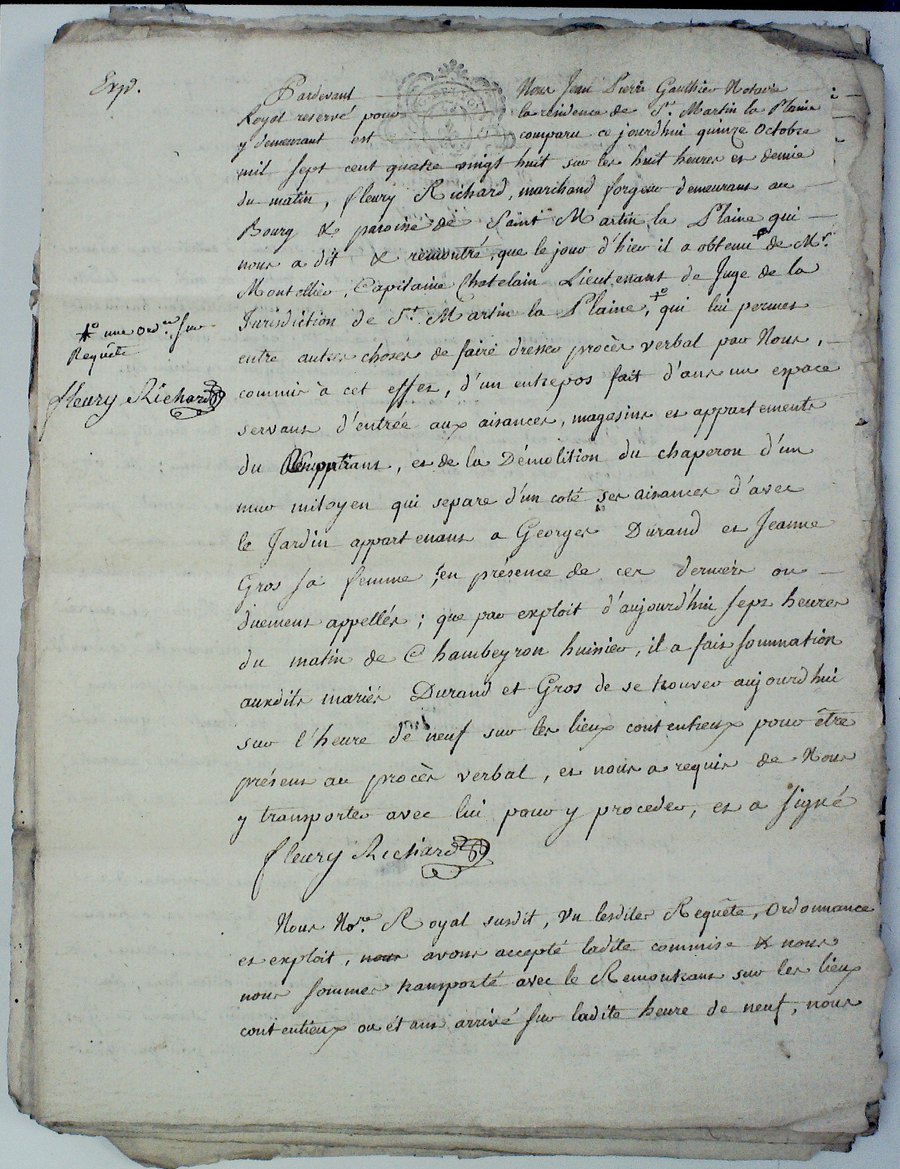 Exp.
Pardevant Nous Jean Pierre Gauthier Notaire
Royal reservé pour la residence de St. Martin la Plaine
y demeurant est comparu ce jourd'hui quinze Octobre
mil sept cent quatre vingt huit sur les huit heures et demie
du matin, fleury Richard, marchand forgeur demeurant au
Bourg & paroisse de Saint Martin la Plaine qui
nous a dit & remontré, que le jour d'hier il a obtenu de Mr.
Montellier, Capitaine Chatelain Lieutenant de Juge de la
Jurisdiction de St. Martin la Plaine, qui lui permet
entre autres choses de faire dresser procès verbal par Nous,
commis à cet effet, d'un entrepos fait d'ans un espace
servant d'entrée aux aisances, magasins et appartements
du, et de la Démolition du chaperon d'un
mur mitoyen qui separe d'un coté ses aisances d'avec
le Jardin appartenant a Georges Durand et Jeanne
Gros sa femme en présence de ces derniers ou
duement appellés ; que par exploit d'aujourd'hui sept heures
du matin de Chambeyron huissier, il a fait sommation
auxdits mariés Durand et Gros de se trouver aujourd'hui
sur l'heure de neuf sur les lieux contentieux pour être
présent au procès verbal, et nous a requis de Nous
y transporter avec lui pour y proceder, et a signé
fleury Richard
+° une ordce sur
Requête
fleury Richard
Nous Nore. Royal susdit, Vu lesdites Requête, Ordonnance
et exploit, nous avons accepté ladite commise & nous
nous sommes transporté avec le Remontrant sur les lieux
contentieux ou étans arrivé sur ladite heure de neuf, nous